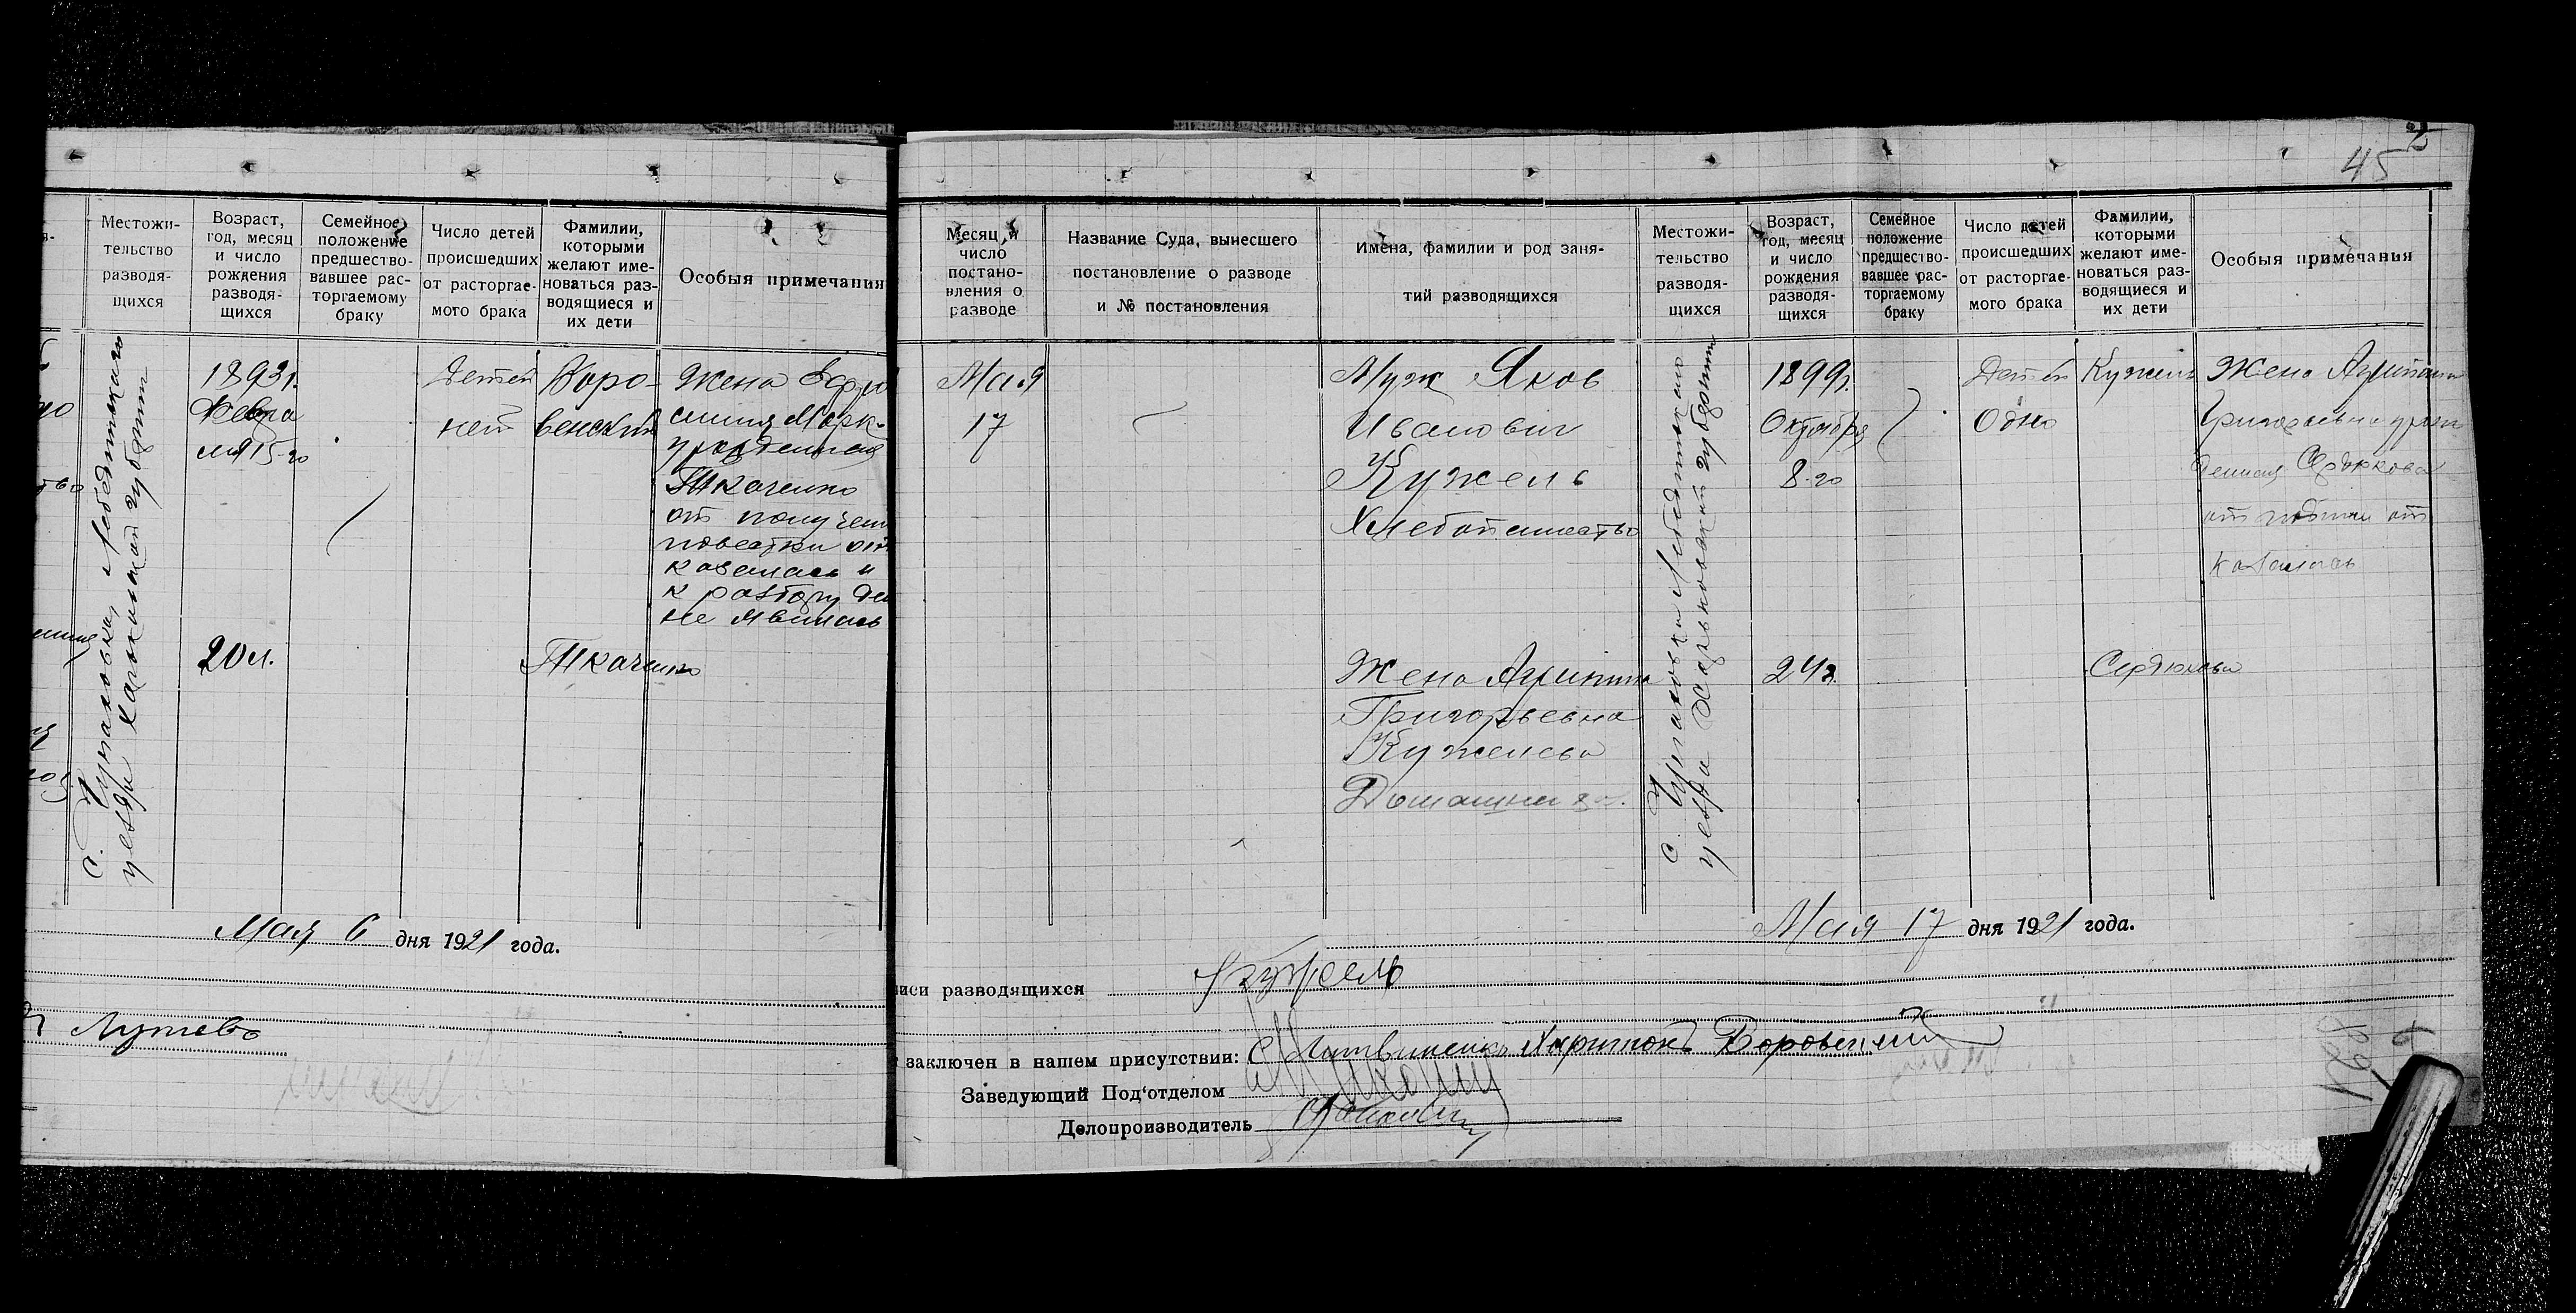 45
Местожи-
тельство
разводя-
щихся
Возраст,
год, месяц
и число
рождения
разводя-
щихся
Семейное
положение
предшество-
вавшее рас-
торгаемому
браку
Число детей
происшедших
от расторгае-
мого брака
Фамилии,
которыми
желают име-
новаться раз-
водящиеся и
их дети
Особыя примечания
1893г.
Февра
ля 15-го
Детей
нет
Воро-
венский
Жена Ефро
синия Марк-
урожденная
Ткаченко
от получен
повестки от
казалась и
к разбору дел
не явилась
с. Лебединскаго
уезда Харьковской губернии
20 л.
Ткаченко
Мая 6 дня 1921 года.
Месяц и
число
постано-
вления о
разводе
Название Суда, вынесшего
постановление о разводе
и № постановления
Имена, фамилии и род заня-
тий разводящихся
Местожи-
тельство
разводя-
щихся
Возраст,
год, месяц
и число
рождения
разводя-
щихся
Семейное
положение
предшество-
вавшее рас-
торгаемому
браку
Число детей
происшедших
от расторгае-
мого брака
Фамилии,
которыми
желают име-
новаться раз-
водящиеся и
их дети
Особыя примечания
Мая
17
Муж Яков
Иванович
Кужель
Хлебопашество
с. Лебединскаго
уезда Харьковской губернии
1899г.
Октября
8-го
Детей
Одно
Кужель
Жена Агрипина
Григорьевна урож
денная Сердюкова
от подписи от
казалась
Жена Агрипина
Григорьевна
Кужелева
Домашнее
24г.
Сердюкова
Мая 17 дня 1921 года.
иси разводящихся Кужель
заключен в нашем присутствии: С Литвиненко Харитонъ Воровенский
Заведующий Под‘отделом
Делопроизводитель